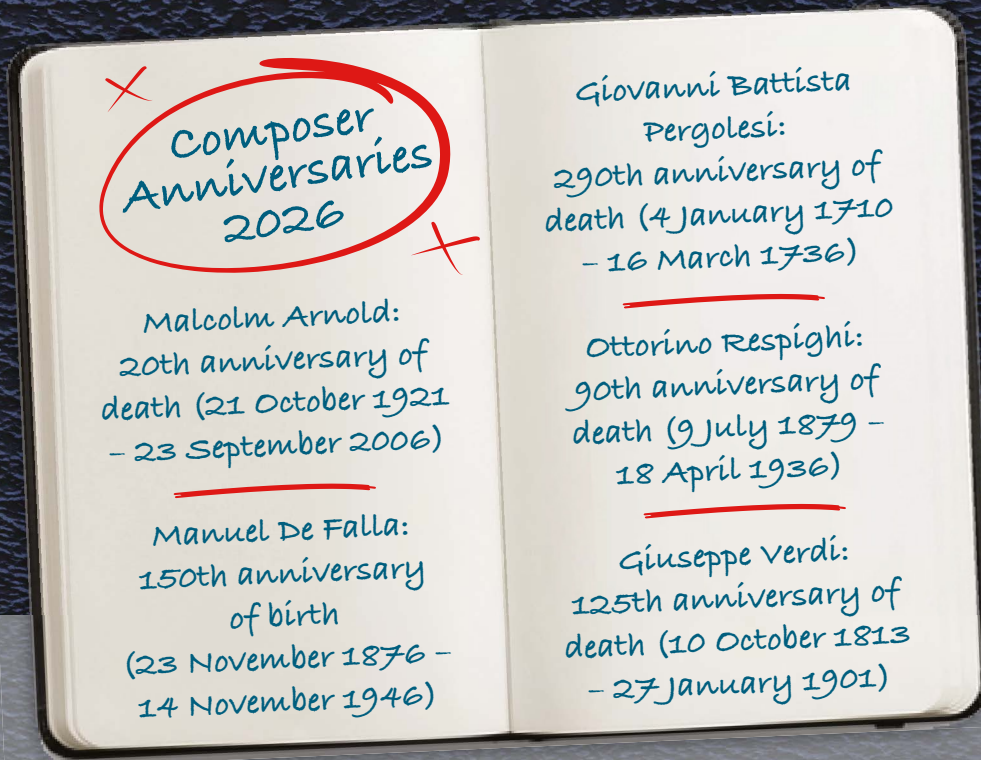 Composer
Anniversaries
2026
Malcolm Arnold:
20th anniversary of
death (21 October 1921
– 23 September 2006)
Manuel De Falla:
150th anniversary
of birth
(23 November 1876 –
14 November 1946)
Giovanni Battista
Pergolesi:
290th anniversary of
death (4 January 1710
– 16 March 1736)
Ottorino Respighi:
90th anniversary of
death (9 July 1879 –
18 April 1936)
Giuseppe Verdi:
125th anniversary of
death (10 October 1813
– 27 January 1901)